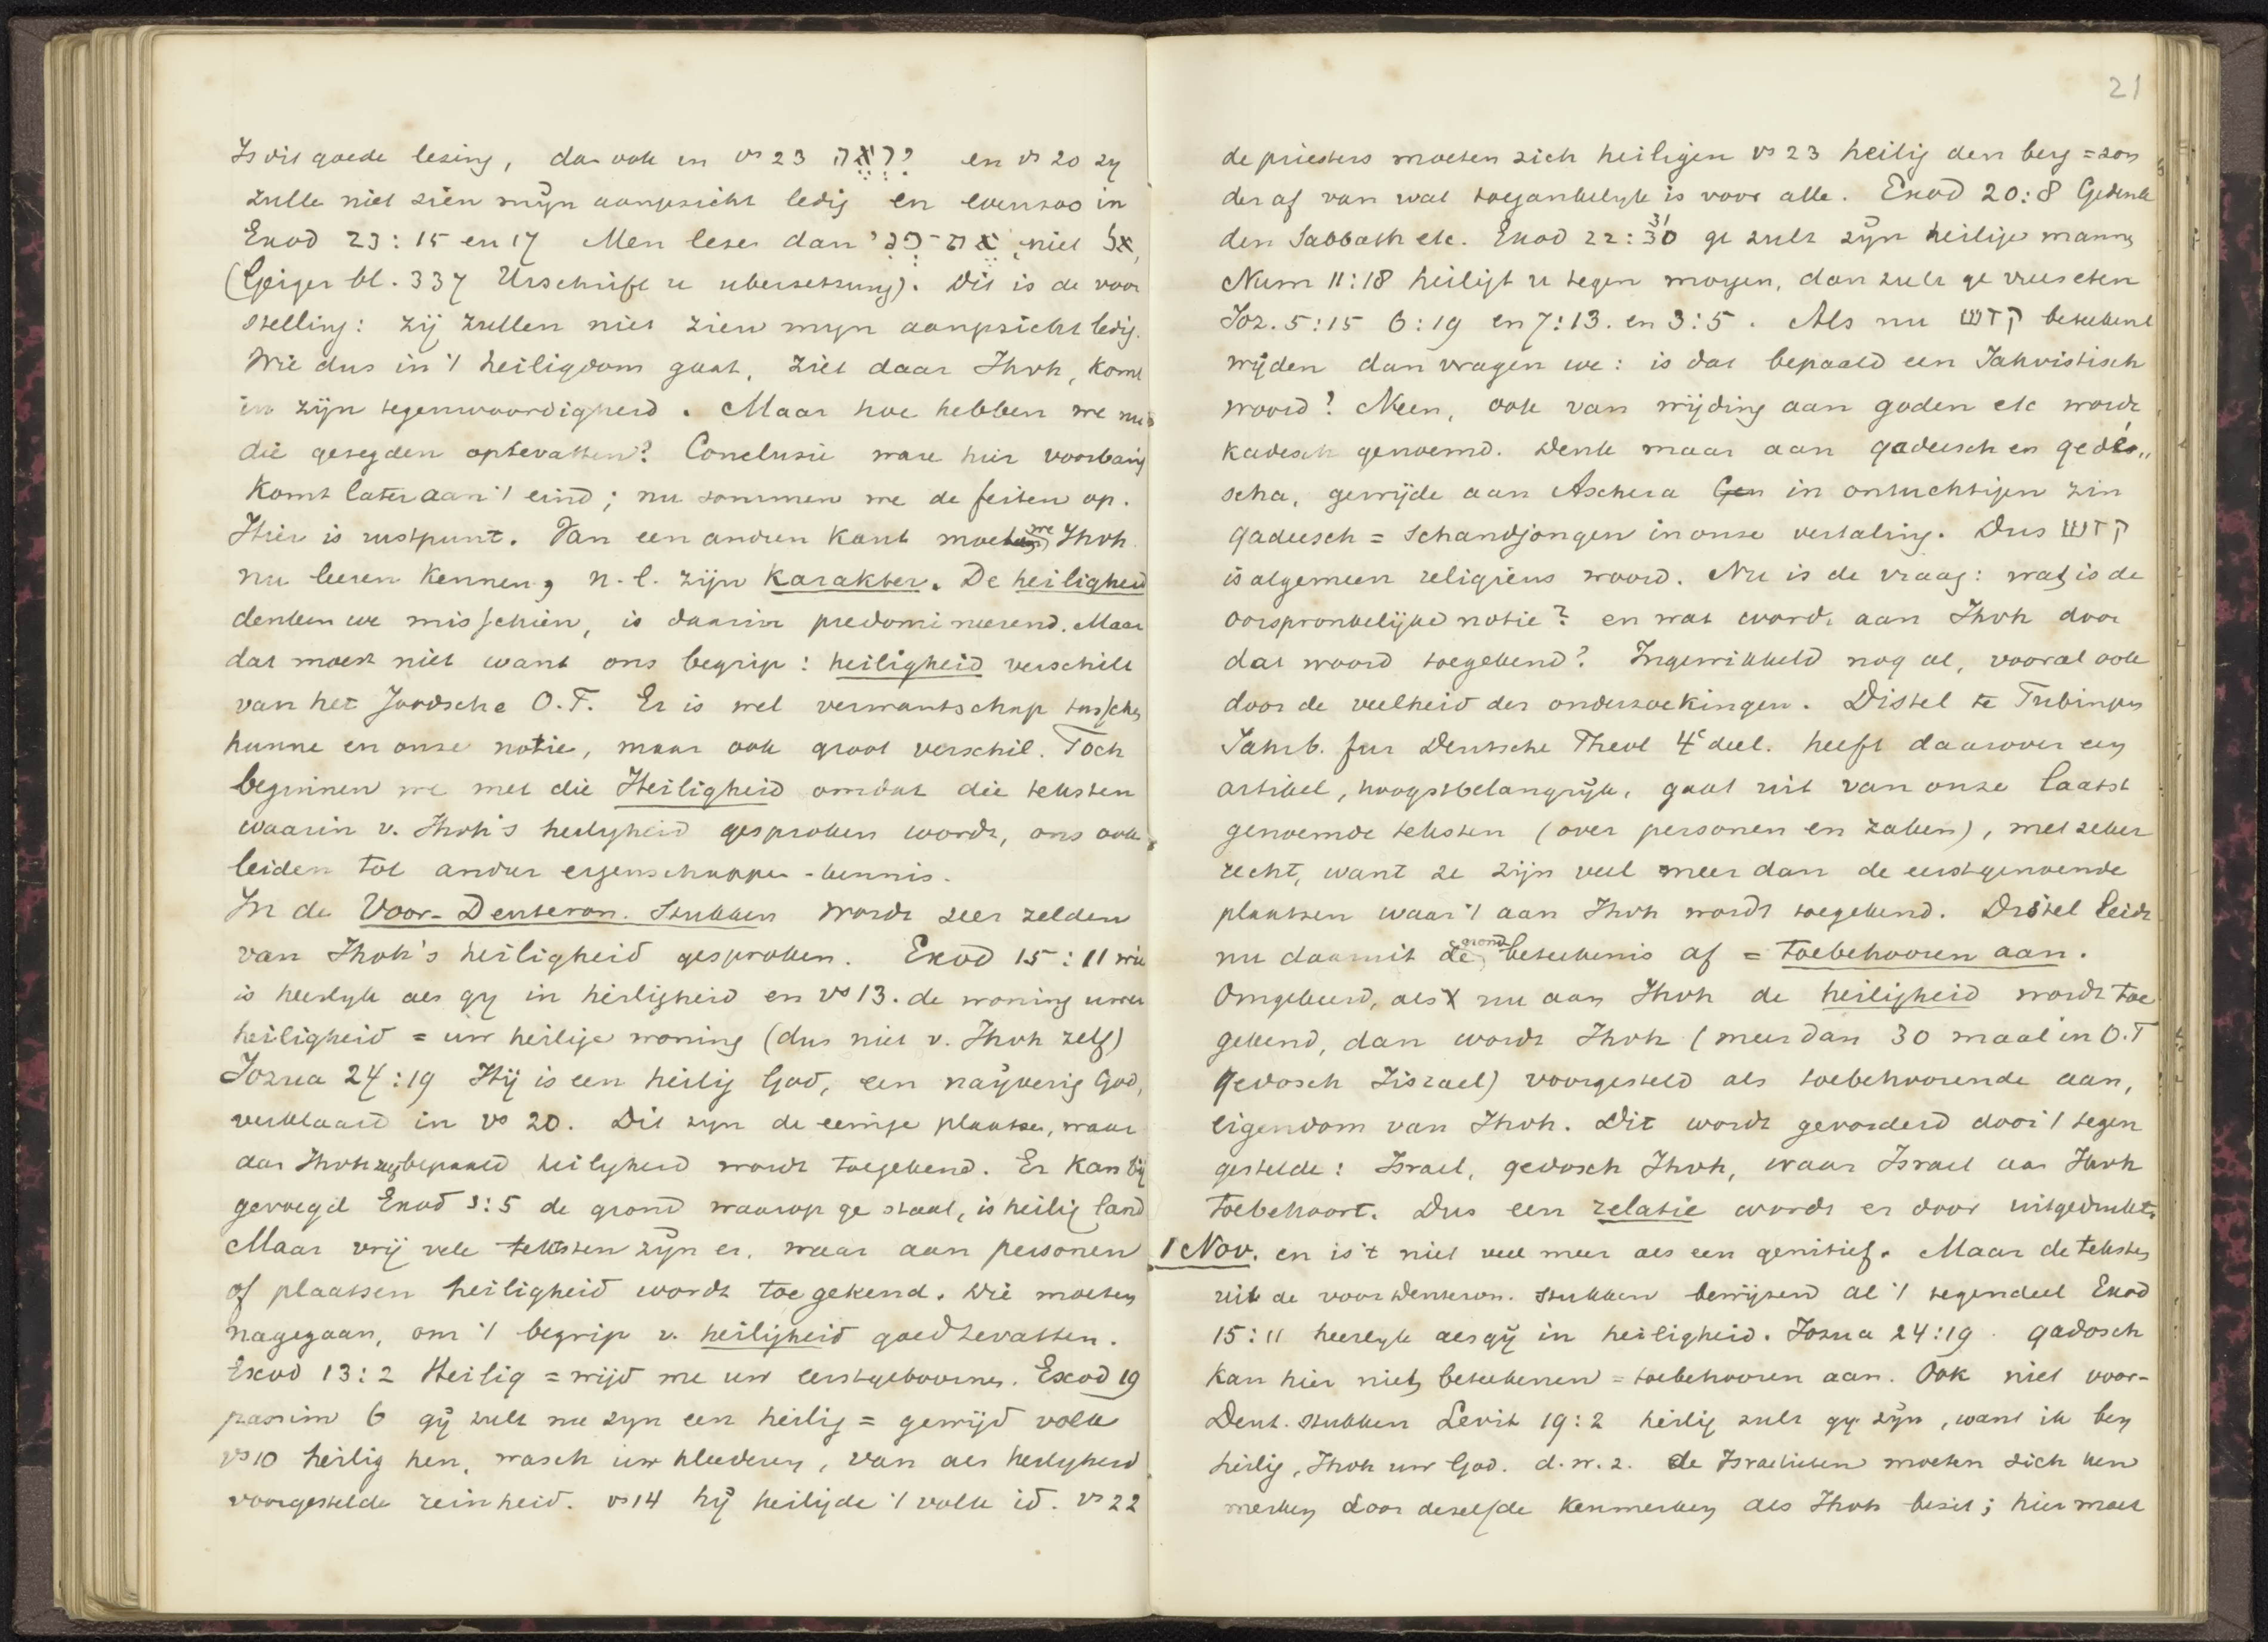 Is dit goede lezing, dan ook in vs 23 יִרְאֶה en vs 20 zy
zulle niet zien mÿn aangezicht ledig en evenzoo in
Exod 23:15 en 17 Men leze dan אֶת־פָּנַי niet אל
(Geiger bl. 337 Urschrift u ubersetzung). Dit is de voor
stelling: zij zullen niet zien myn aangezicht ledig.
Wie dus in 't heiligdom gaat, ziet daar Jhvh, komt
in zijn tegenwoordigheid. Maar hoe hebben we nu
die gezegden optevatten? Conclusie ware hier voorbarig
Komt later aan 't eind; nu sommen we de feiten op.
Hier is rustpunt. Van een andren kant moeten we Jhvh
nu leeren kennen, n.l. zijn karakter. De heiligheid
denken we misschien, is daarin predomineerend. Maar
dat moet niet want ons begrip: heiligheid verschilt
van het Joodsche O.T. Er is wel verwantschap tusschen
hunne en onze notie, maar ook groot verschil. Toch
beginnen we met die Heiligheid omdat die teksten
waarin v. Jhvh's heiligheid gesproken wordt, ons ook
leiden tot ander eigenschappen-kennis.
In de Voor-Deuteron. Stukken wordt zeer zelden
van Jhvh's heiligheid gesproken. Exod 15:11 wie
is heerlyk als gy in heiligheid en vs 13. de woning uwer
heiligheid = uw heilige woning (dus niet v. Jhvh zelf)
Jozua 24:19 Hij is een heilig God, een naÿverig God,
verklaard in vs 20. Dit zyn de eenige plaatsen, waar
aan Jhvh zelf bepaald heiligheid wordt toegekend. Er kan bij
gevoegd Exod 3:5 de grond waarop ge staat, is heilig land
Maar vrij vele teksten zÿn er, waar aan personen
of plaatsen heiligheid wordt toegekend. Die moeten
nagegaan, om 't begrip v. heiligheid goed te vatten.
Exod 13:2 Heilig = wijd me uw eerstgeboornes. Exod 19
passim 6 gÿ zult me zyn een heilig = gewijd volk
vs 10 heilig hen, wasch uw kleederen, van als heiligheid
voorgestelde reinheid. vs 14 hÿ heiligde 't volk id. vs 22
21
de priesters moeten zich heiligen vs 23 heilig den berg = zon
der af van wat toegankelyk is voor alle. Exod 20:8 Gedenk
den Sabbath etc. Exod 22:30 31 ge zult zÿn heilige mannen
Num 11:18 heiligt u tegen morgen, dan zult ge vleesch eten
Joz. 5:15 6:19 en 7:13. en 3:5. Als nu קדש beteekent
wijden dan vragen we: is dat bepaald een Jahvistisch
woord? Neen, ook van wijding aan goden etc wordt
kadesch genoemd. Denk maar aan qadeesch en qedee„
scha, gewijde aan Aschera Gen in ontuchtigen zin
qadeesch = schandjongen in onze vertaling. Dus קדש
is algemeen religieus woord. Nu is de vraag: wat is de
oorspronkelijke notie? en wat wordt aan Jhvh door
dat woord toegekend? Ingewikkeld nog al, vooral ook
door de veelheid der onderzoekingen. Distel te Tubingen
Jahrb. fur Deutsche Theol 4e deel. heeft daarover een
artikel, hoogstbelangrÿk, gaat uit van onze laatst
genoemde teksten (over personen en zaken), met zeker
recht, want ze zijn veel meer dan de eerstgenoemde
plaatsen waar 't aan Jhvh wordt toegekend. Distel leidt
nu daaruit de grond beteekenis af = toebehooren aan.
Omgekeerd, als nu aan Jhvh de heiligheid wordt toe
gekend, dan wordt Jhvh (meer dan 30 maal in O.T
qedosch Jisrael) voorgesteld als toebehoorende aan,
eigendom van Jhvh. Dit wordt gevorderd door 't tegen
gestelde: Israel, qedosch Jhvh, waar Israel aan Jhvh
toebehoort. Dus een relatie wordt er door uitgedrukt.
1 Nov. en is 't niet veel meer als een genitief. Maar de teksten
uit de voor Deuteron. stukken bewijzen al 't tegendeel Exod
15:11 heerlyk als gÿ in heiligheid. Jozua 24:19. qadosch
kan hier niet beteekenen = toebehooren aan. Ook niet voor-
Deut. stukken Levit 19:2 heilig zult gy zÿn, want ik ben
heilig, Jhvh uw God. d.w.z. de Israelieten moeten zich ken
merken door dezelfde kenmerken als Jhvh bezit; hier moet